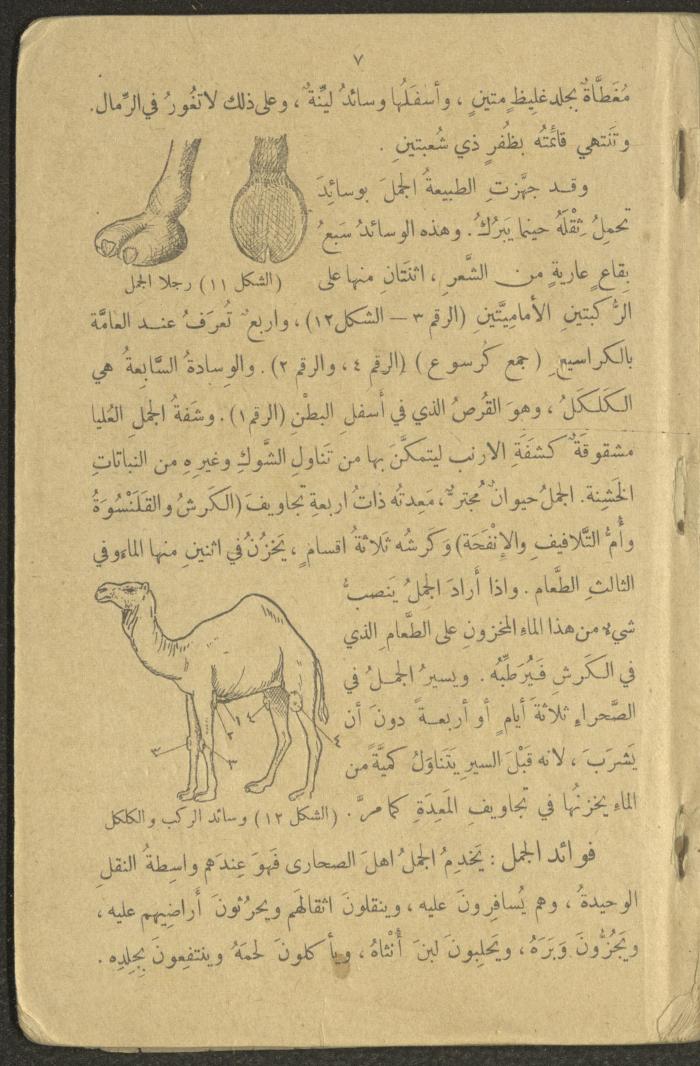 ٧
مُغَطَّاةٌ بجلد غليظٍ متينٍ ، وأسفَلُها وسائدُ ليِّنةٌ ، وعلى ذلك لا تغُورُ في الرِّمال.
وتَنتهي قائمتُه بظُفرٍ ذي شُعبتينِ .
وقد جهَّزتِ الطبيعةُ الجملَ بوسائِدَ
تحمِلُ ثِقْلَهُ حينما يَبرُكُ. وهذه الوسائدُ سَبعُ
بِقاعٍ عاريةٍ من الشَّعرِ ، اثنَتَانِ منها على
(الشكل ١١) رجلا الجمل
الرُّكبتينِ الأماميَّتَينِ (الرقم ٣ – الشكل ١٢) ، واربعٌ تُعرَفُ عند العامَّة
بالكراسيعِ (جمع كُرسوع) (الرقم ٤ ، والرقم ٢) . والوِسادةُ السَّابعةُ هي
الكَلكَلُ ، وهوَ القُرصُ الذي في أسفلِ البطْنِ (الرقم ١) . وشَفةُ الجملِ العُليا
مشقوقةٌ كشفَةِ الارنب ليتمكَّنَ بها من تَناولِ الشَّوكِ وغيرِهِ من النباتاتِ
الخَشِنة. الجملُ حيوانٌ مُجترٌّ ، مَعدتُه ذاتُ اربعةِ تجاويفَ (الكَرشُ والقَلَنْسُوَةُ
وأُمُّ التَّلافيفِ والإنفَحَة) وَكَرشُه ثلاثةُ اقسامٍ ، يَخزُنُ في اثنينِ منها الماءَ وفي
الثالثِ الطَّعام . واذا أَرادَ الجملُ يَنصبُّ
شيء من هذا الماءِ المخزونِ على الطَّعامِ الذي
في الكَرشِ فَيُرَطِّبُه . ويسيرُ الجملُ في
الصَّحراءِ ثلاثةَ أيامٍ أو أربعةً دونَ أن
يَشرَبَ ، لانه قَبْلَ السيرِ يَتَناوَلُ كميَّةً من
الماءِ يخزنُها في تجاويفِ المَعِدَةِ كما مرَّ .
١
٤
٢
٣
٣
٤
(الشكل ١٢) وسائد الركب والكلكل
فوائد الجمل : يَخدِمُ الجملُ اهلَ الصحارى فَهوَ عِندَهم واسِطةُ النقلِ
الوحيدةُ ، وهم يُسافِرونَ عليه ، وينقلونَ اثقالهَم ويحرُثونَ أَراضِيهم عليه ،
ويَجُزُّونَ وَبَرَهُ ، ويَحلِبونَ لبنَ أُنْثاهُ ، ويأكلونَ لحمَهُ وينتفعِونَ بِجلدِه .